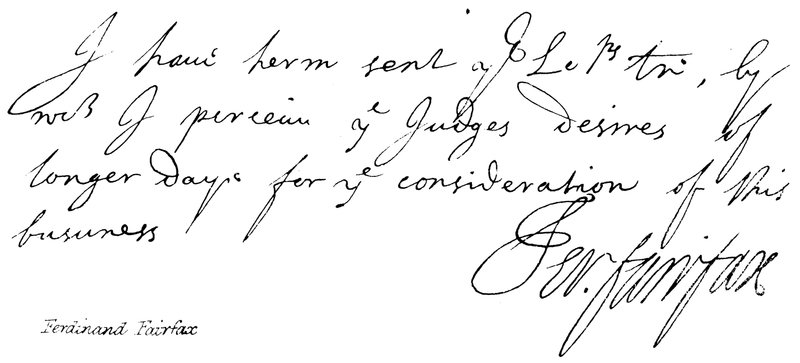 I haue herin sent yo Lo ps tri, by
wch I perceiue ye Judges desires of
longer daye for ye consideration of this
busuness
Fer. fairfax
Ferdinand Fairfax